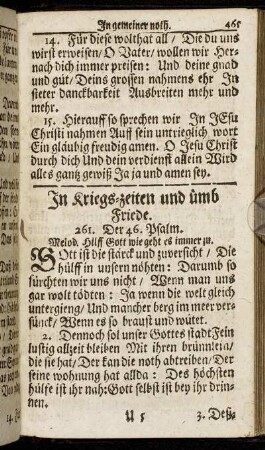 In gemeiner noth. 465
14. Für diese wolthat all / Die du uns
wirst erweisen / O Vater / wollen wir Her-
nach dich immer preisen: Und deine gnad
und güt / Deins grossen nahmens ehr In
steter danckbarkeit Ausbreiten mehr und
mehr.
15. Hierauff so sprechen wir In JEsu
Christi nahmen Auff sein untrieglich wort
Ein gläubig freudig amen. O Jesu Christ
durch dich Und dein verdienst allein Wird
alles gantz gewiß Ja ja und amen sey.
In Kriegs-zeiten und ümb
Friede.
261. Der 46. Psalm.
Melod. Hilff Gott wie geht es immer zu.
GOtt ist die stärck und zuversicht / Die
hülff in unsern nöhten: Darumb so
fürchten wir uns nicht / Wenn man uns
gar wolt tödten: Ja wenn die welt gleich
untergieng / Und mancher berg im meer ver-
sünck / Wenn es so braust und wütet.
2. Dennoch sol unser Gottes stadt Fein
lustig allzeit bleiben Mit ihren brünnlein /
die sie hat / Der kan die noth abtreiben / Der
seine wohnung hat allda: Des höchsten
hülfe ist ihr nah: Gott selbst ist bey ihr drin-
nen.
U 5 3. Deß-